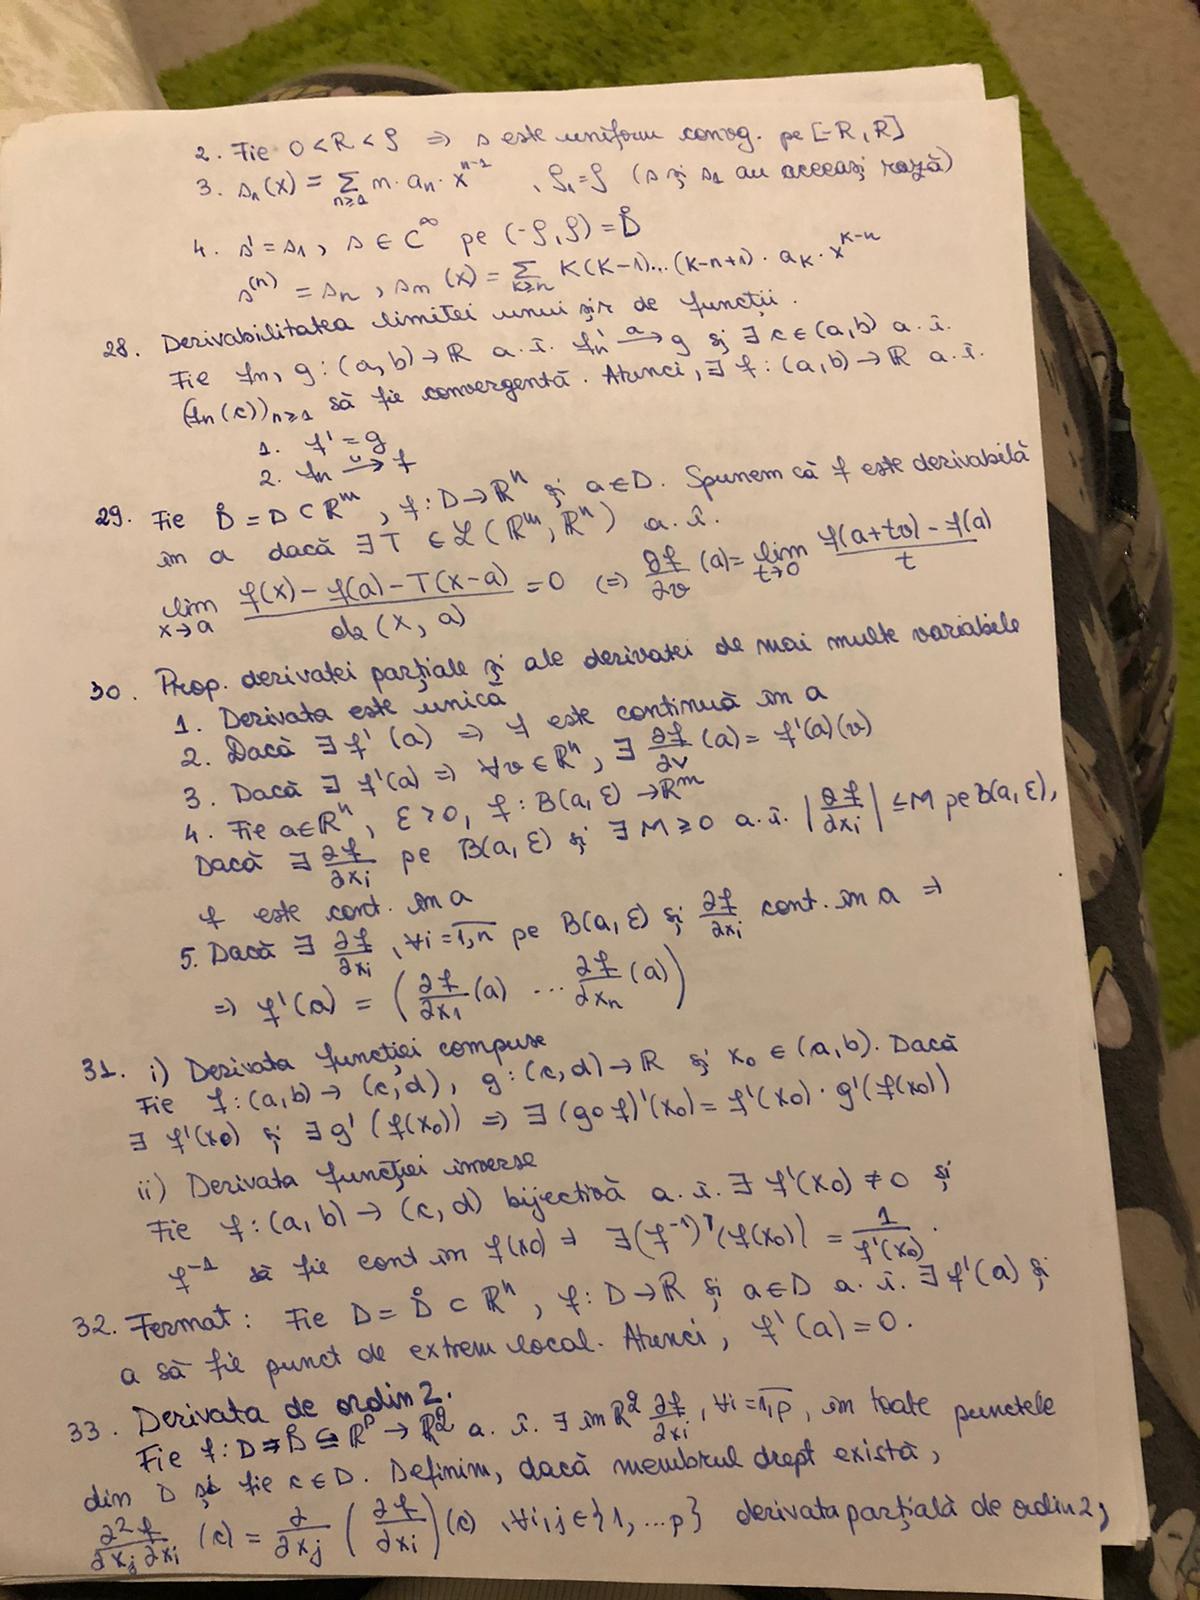 2. Fie 0 < R < ρ ⇒ s este uniform convg. pe [-R, R]
3. s₁(x) = Σ_{n≥1} n · aₙ · x^{n-1}, ρ₁ = ρ (s și s₁ au aceeași rază)
4. s' = s₁, s ∈ C^∞ pe (-ρ, ρ) = D̊
s^{(n)} = sₙ, sₙ(x) = Σ_{k≥n} k(k-1)...(k-n+1) · a_k · x^{k-n}
28. Derivabilitatea limitei unui șir de funcții.
Fie fₙ, g : (a, b) → ℝ a. î. fₙ' →^{u} g și ∃ c ∈ (a, b) a. î.
(fₙ(c))_{n≥1} să fie convergentă. Atunci, ∃ f : (a, b) → ℝ a. î.
1. f' = g
2. fₙ →^{u} f
29. Fie D̊ = D ⊂ ℝ^m, f : D → ℝ^n și a ∈ D. Spunem că f este derivabilă
în a dacă ∃ T ∈ ℒ(ℝ^m, ℝ^n) a. î.
lim_{x→a} (f(x) - f(a) - T(x-a)) / d₂(x, a) = 0 (=) ∂f/∂v (a) = lim_{t→0} (f(a+tv) - f(a)) / t
30. Prop. derivatei parțiale și ale derivatei de mai multe variabile
1. Derivata este unică
2. Dacă ∃ f'(a) ⇒ f este continuă în a
3. Dacă ∃ f'(a) ⇒ ∀v ∈ ℝ^n, ∃ ∂f/∂v (a) = f'(a)(v)
4. Fie a ∈ ℝ^n, ε > 0, f : B(a, ε) → ℝ^m
Dacă ∃ ∂f/∂x_i pe B(a, ε) și ∃ M ≥ 0 a. î. |∂f/∂x_i| ≤ M pe B(a, ε),
f este cont. în a
5. Dacă ∃ ∂f/∂x_i, ∀i = 1,n pe B(a, ε) și ∂f/∂x_i cont. în a ⇒
⇒ f'(a) = (∂f/∂x₁ (a) ... ∂f/∂xₙ (a))
31. i) Derivata funcției compuse
Fie f : (a, b) → (c, d), g : (c, d) → ℝ și x₀ ∈ (a, b). Dacă
∃ f'(x₀) și ∃ g'(f(x₀)) ⇒ ∃ (g∘f)'(x₀) = f'(x₀) · g'(f(x₀))
ii) Derivata funcției inverse
Fie f : (a, b) → (c, d) bijectivă a. î. ∃ f'(x₀) ≠ 0 și
f⁻¹ să fie cont în f(x₀) ⇒ ∃ (f⁻¹)'(f(x₀)) = 1/f'(x₀).
32. Fermat : Fie D = D̊ ⊂ ℝ^n, f : D → ℝ și a ∈ D a. î. ∃ f'(a) și
a să fie punct de extrem local. Atunci, f'(a) = 0.
33. Derivata de ordin 2.
Fie f : D = D̊ ⊆ ℝ^p → ℝ^2 a. î. ∃ în ℝ^2 ∂f/∂x_i, ∀i = 1,p, în toate punctele
din D și fie c ∈ D. Definim, dacă membrul drept există,
∂²f/∂x_j ∂x_i (c) = ∂/∂x_j (∂f/∂x_i)(c), ∀i,j ∈ {1, ... p} derivata parțială de ordin 2,